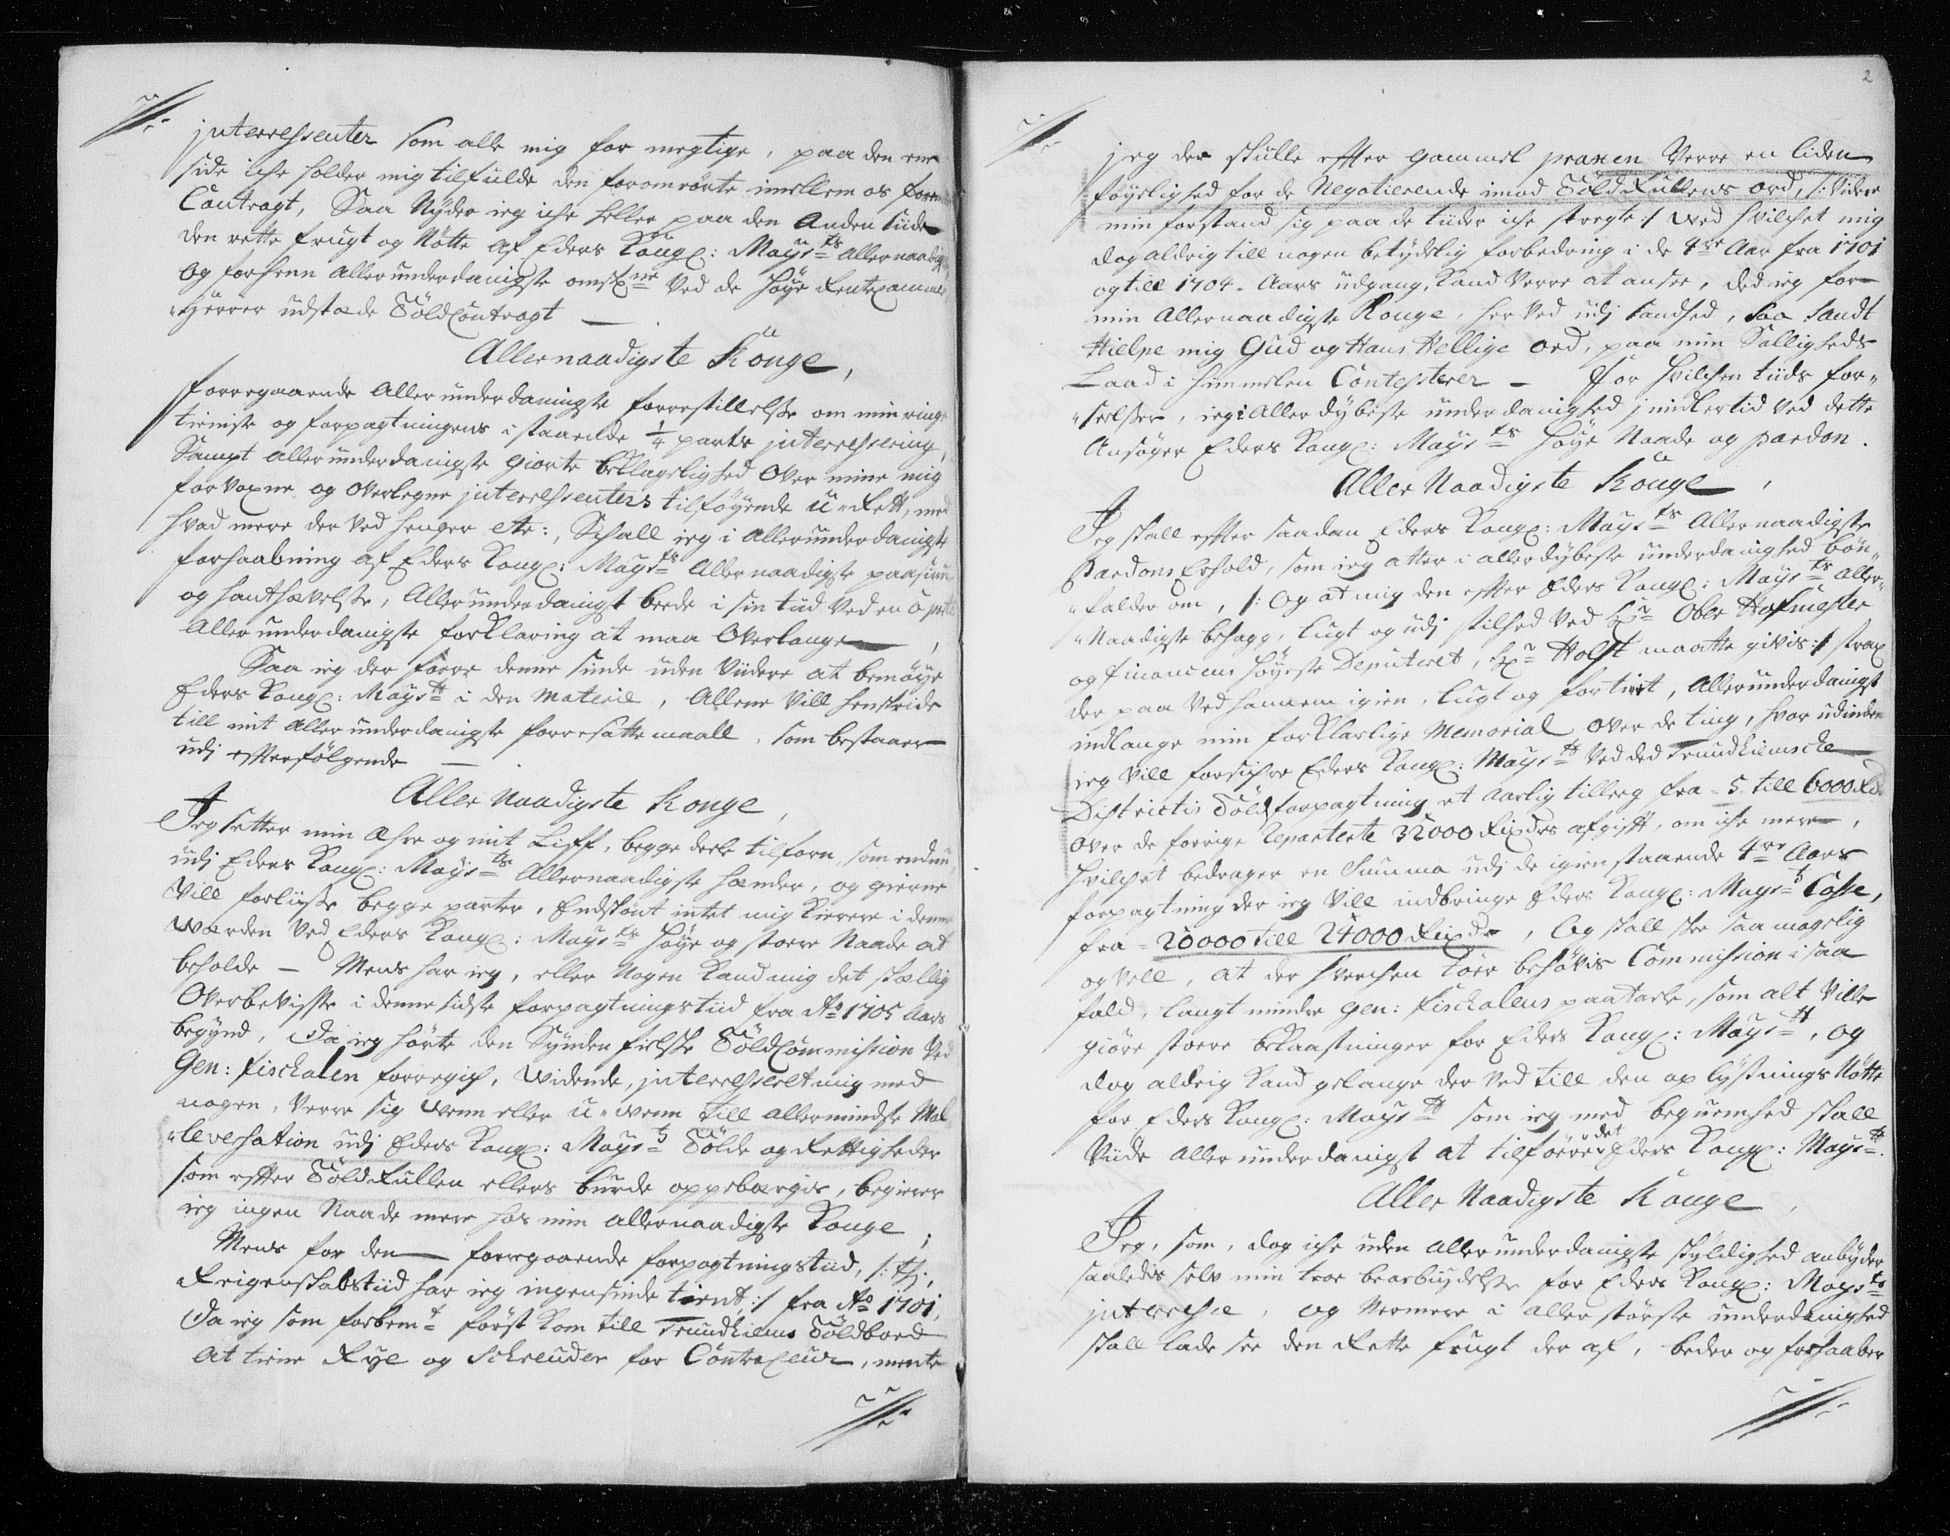 jnteressenter som alle mig for megtige, paa den ene
side iche holder mig tilfulde den foromrörte imellem os
Contragt, Saa Nyder ieg iche heller paa den Anden Side
den rette frugt og Nötte af Eders Kongl: Mayts Allernaadigste
og forhenn allerunderdanigste Ved de Höye Rentecammer
herrer udstæde ToldContragt
Allernaadigste Konge,
forregaaende Allerunderdanigste forrestillelsse om min ringe
tieniste og forpagtningens istaaende 1/4 parts jnteressering,
Sampt allerunderdanigste giorte beklagelighed Over mine mig
forvoxne og overlegne jnteressenters tilföyende U-Rett, med
hvad mere der Ved henger etc:, Schall ieg i Allerunderdanigste
forhaabning af Eders Kongl: Mayts Allernaadigste
og hanthævelsse, Allerunderdanigst berede i sin tiid Ved en
Allerunderdanigste forklaring at maa Overlange,
Saa ieg der forre denne sinde uden Viidere at bemöye
Eders Kongl: Mayt i den Materie, Allene Vill henskride
till mit allerunderdanigste forresatte maall, som bestaaer
udj effterfölgende
Aller Naadigste Konge,
Jeg setter min Æhre og mit Liff, begge dele tilforn, som endnu,
udj Eders Kongl: Mayts Allernaadigste hænder, og gierne
Vill forliisse begge parter, Endskönt intet mig kierere i denne
Werden Ved Eders Kongl: Mayts Höye og store Naade at
beholde - Mens har ieg, eller Nogen Kand mig det skiellig
Overbevisse i denne sidste forpagtningstiid fra Ao 1705 Aars
begynd, Da ieg hörte den Synden fielske ToldCommission Ved
Gen: fischalen forregik, Widende, jnteresseret mig med
nogen, Verre sig Wenn eller U-wenn till allermindste Mal
leversation udj Eders Kongl: Mayts Tolde og Rettigheder
som effter ToldRullen ellers burde oppebærgis, begierer
ieg ingen Naade mere hos min allernaadigste Konge,
Mens for den forregaaende forpagtningstiid,
Reigenskabstiid har ieg ingensinde tient :/ fra Ao 1701,
Da ieg som forbemt först kom till Trundhiems Toldboed
at tiene Rye og Schreuder for Contraleur, mente
2
jeg der skulle effter gammel praxen Verre en liden
föyelighed for de Negotierende imod ToldRullens ord, /: videre
min forstand sig paa de tiider iche stregte :/ Wed hvilchet mig
dog aldrig till nogen betydelig forbedring i de 4re Aar fra 1701
og till 1704. Aars udgang, Kand Verre at ansee, ded ieg for
min Allernaadigste Konge, her Ved udj sandhed, saa sandt
Hielpe mig Gud og Hans Hellige ord, paa min Salligheds
Laad i Himmelen Contesterer - For hvilchen tiids for-
seelsser, ieg i Allerdybeste underdanighed jmidlertid Ved dette
Ansöger Eders Kongl: Mayts Höye Naade og pardon.
Aller Naadigste Konge,
Jeg skall effter saadan Eders Kongl: Mayts Allernaadigste
Pardons Erhold, som ieg atter i allerdybeste underdanighed bön-
falder om, /: og at mig den effter Eders Kongl: Mayts Aller-
Naadigste behagg, lugt og udj stilhed Ved Hr Ober Hofmester
og financens Höyeste Deputeret, Hr Holst maatte givis :/ strax
der paa Ved hannem igien, lugt og fortiet, Allerunderdanigst
indlange min forklarlige Memorial over de ting, hvor udinden
ieg Vill forsichre Eders Kongl: Mayts Ved ded Trundhiemsche
Districtis Toldforpagtning et aarlig tilleg fra 5 till 6000 Rdr
over de forrige Reparterte 32000 Rixdrs afgift, om iche mere,
hvilchet bedrager en Summa udj de igienstaaende 4re Aars
forpagtning der ieg Vill indbringe Eders Kongl: Mayts Casse,
fra - 20000 till 24000 Rixdr, Og skall skee saa magelig
og Vell, at der hverchen töer behövis Commission i saa
fald, langt mindre Gen: fischalens paatale, som alt Ville
giöre störe bekaastninger for Eders Kongl: Mayt, og
dog aldrig Kand gelange der Ved till den oplystnings Nötte
for Eders Kongl: Mayt som ieg med beqvemhed skall
Viide Allerunderdanigst at tilföere det Eders Kongl: Mayt.
Aller Naadigste Konge,
Jeg, som, dog iche uden Allerunderdanigste skyldighed anbyder
saaledis selv min troe bearbeydelsse for Eders Kongl: Mayts
jnteresse, og Nermere i aller störste underdanighed
skall lade see den Rette frugt der af, beder og forhaaber